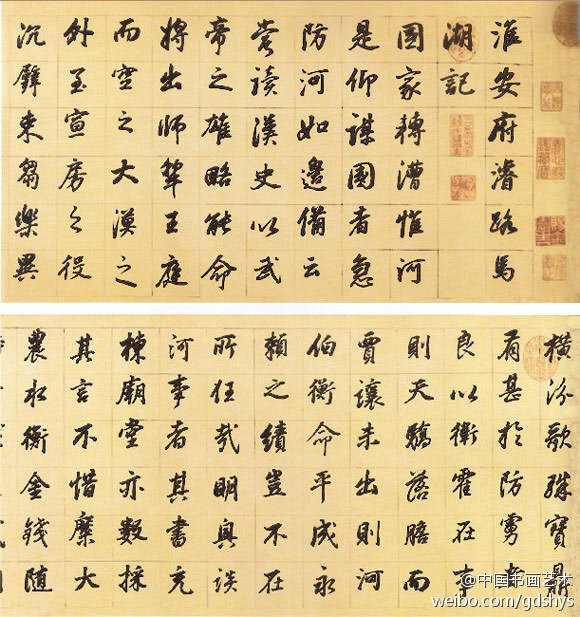 淮安府濬路馬
湖記
國家轉漕惟河
是仰謀國者急
防河如邊備云
嘗讀漢史以武
帝之雄略能命
將出師犂王庭
而空之大漠之
外至宣房之役
沉璧束芻樂異
橫汾歌殊寶鼎
有甚於防虜
良以衛霍在事
則天驕落膽而
賈讓未出則河
伯衡命平成永
賴之績豈不在
所任哉明興談
河事者其書充
棟廟堂亦數採
其言不惜糜大
農水衡金錢随
@中国书画艺术
weibo.com/gdshys